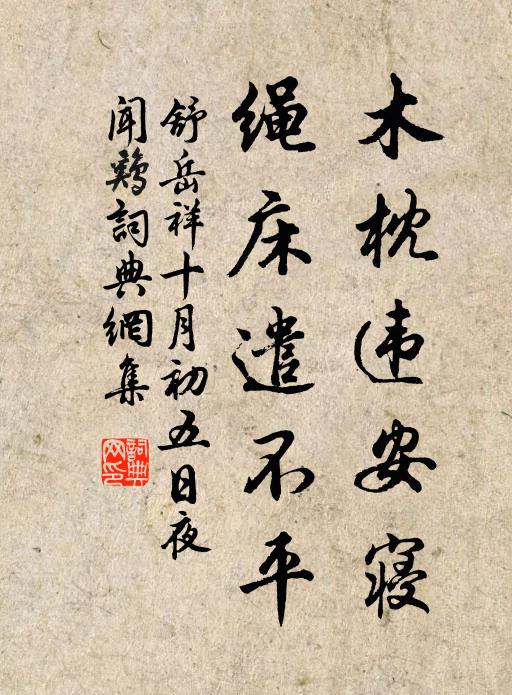 木枕违安寝
绳床遣不平
舒岳祥十月初五日夜
闻鸡詞典網集
詞典网印